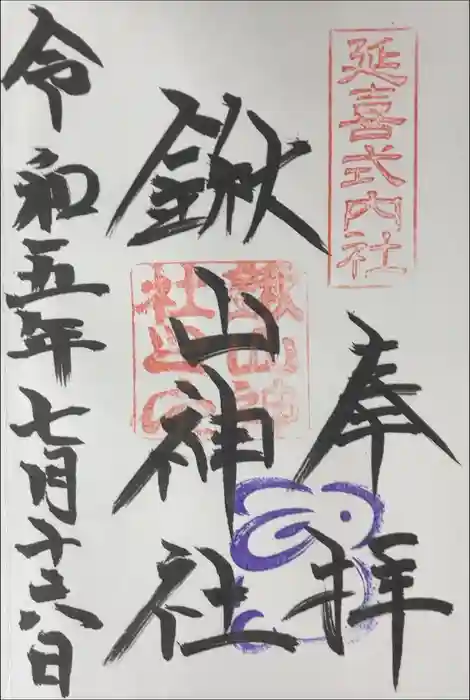 延喜式内社
奉拝
鍬山神社
鍬山神社之印
令和五年七月十六日